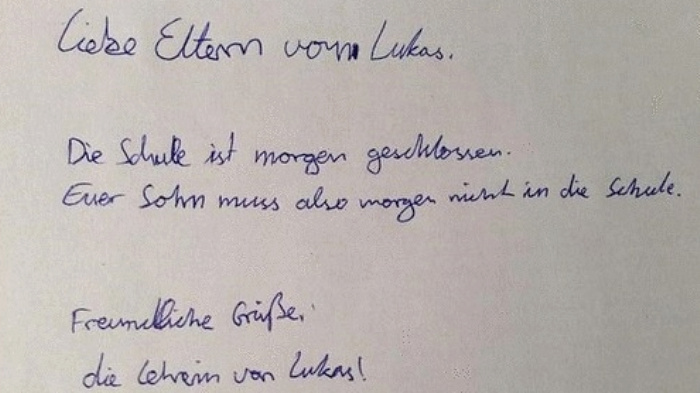 Liebe Eltern vom Lukas.
Die Schule ist morgen geschlossen.
Euer Sohn muss also morgen nicht in die Schule.
Freundliche Grüße.
die Lehrein von Lukas!